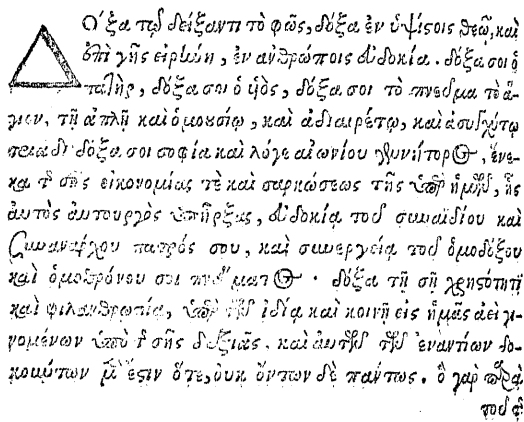 Δόξα τῷ δείξαντι τὸ φῶς, δόξα ἐν ὑψίστοις θεῷ, καὶ
ἐπὶ γῆς εἰρήνη, ἐν ἀνθρώποις εὐδοκία. δόξα σοι ὁ
πατὴρ, δόξα σοι ὁ υἱὸς, δόξα σοι τὸ πνεῦμα τὸ ἅ-
γιον, τῇ ἁπλῇ καὶ ὁμουσίῳ, καὶ ἀδιαιρέτῳ, καὶ ἀσυγχύτῳ
τριάδι· δόξα σοι σοφία καὶ λόγε αἰωνίου γεννήτορος, ἕνε-
κα τῆς σῆς οἰκονομίας τὲ καὶ σαρκώσεως τῆς ὑπὲρ ἡμῶν, ἧς
αὐτὸς αὐτουργὸς ὑπῆρξας, εὐδοκία τοῦ συναϊδίου καὶ
συνανάρχου πατρός σου, καὶ συνεργεία τοῦ ὁμοδόξου
καὶ ὁμοθρόνου σοι πνεύματος. δόξα τῇ σῇ χρηστότητι
καὶ φιλανθρωπία, ὑπὲρ τῶν ἰδία καὶ κοινῇ εἰς ἡμᾶς ἀεὶ γι-
νομένων ὑπὸ τῆς σῆς δεξιᾶς. καὶ αὐτῶν τῶν ἐναντίων δο-
κούντων μὲν ἔστιν ὅτε, οὐκ ὄντων δὲ πάντως. ὁ γὰρ παρὰ
τοῦ